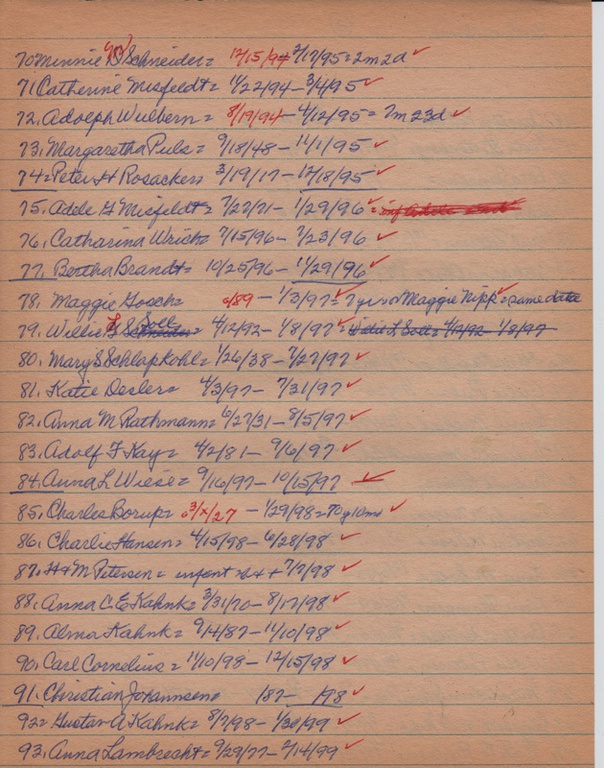 70 Minnie (W) D Schneider = 12/15/94 2/17/95 = 2m 2d ✓
71 Catherine Misfeldt = 11/22/94 - 3/4/95 ✓
72. Adolph Wulbern = 8/19/94 - 4/12/95 = 7m 23d ✓
73. Margaretha Puls = 9/18/48 - 11/1/95 ✓
74 = Peter H Rosacker = 3/19/17 - 12/18/95 ✓
75. Adele G Misfeldt = 7/27/71 - 1/29/96 ✓
76. Catharina Wrich = 7/15/96 - 7/23/96 ✓
77. Bertha Brandt = 10/25/96 - 11/29/96 ✓
78. Maggie Gosch = 89 - 1/3/97 ✓ = 7 yrs or Maggie Nipp = same date
79. Willie L Soll = 4/12/92 - 1/8/97 ✓ = Willie L Soll = 4/12/92 1/8/97
80. Mary S Schlapkohl = 1/26/38 - 7/27/97 ✓
81. Katie Desler = 4/3/97 - 7/31/97 ✓
82. Anna M Rathmann = 6/27/31 - 8/5/97 ✓
83. Adolf F Kay = 4/2/81 - 9/6/97 ✓
84. Anna L Wiese = 9/16/97 - 10/15/97 ✓
85. Charles Borup = 3/x/27 - 1/29/98 = 70y 10mo ✓
86. Charlie Hansen = 4/15/98 - 6/28/98 ✓
87. H + M Petersen = infant + 7/7/98 ✓
88. Anna C. E Kahnk = 3/31/70 - 8/17/98 ✓
89. Alma Kahnk = 9/14/87 - 11/10/98 ✓
90. Carl Cornelius = 11/10/98 - 12/15/98 ✓
91. Christian Johannsen = 187- 198 ✓
92 = Gustav A Kahnk = 8/7/98 - 1/30/99 ✓
93. Anna Lambrecht = 9/29/77 - 2/14/99 ✓